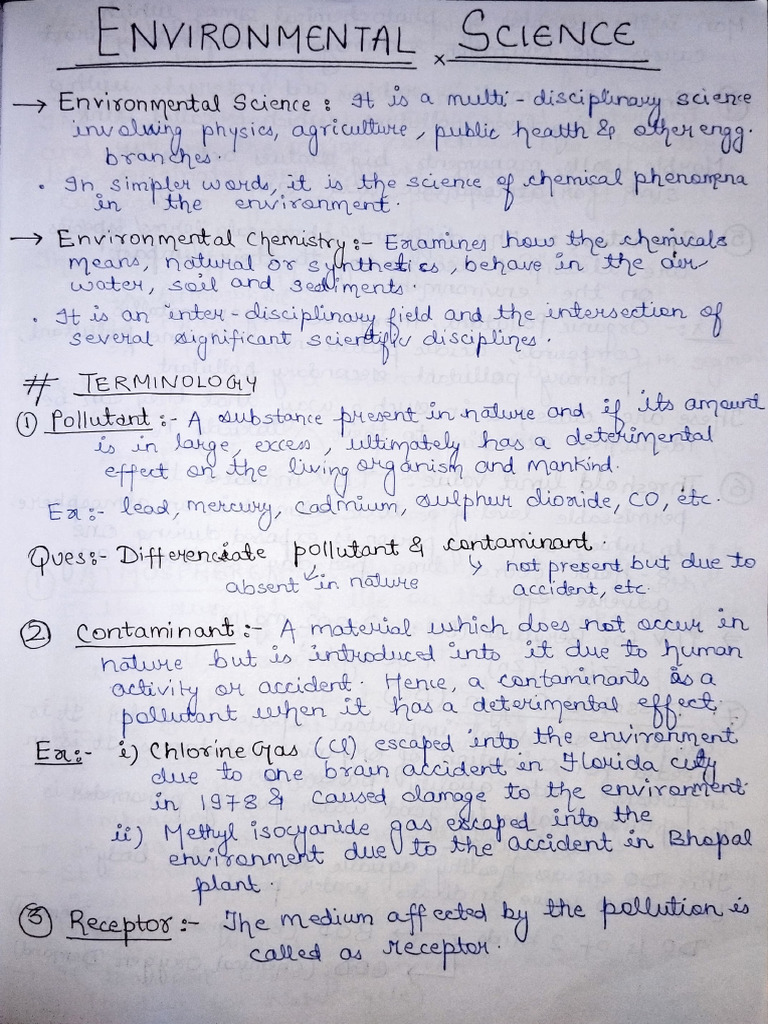 ENVIRONMENTAL x SCIENCE
→ Environmental Science : It is a multi-disciplinary science
involving physics, agriculture, public health & other engg.
branches.
• In simpler words, it is the science of chemical phenomena
in the environment.
→ Environmental Chemistry :- Examines how the chemicals
means, natural or synthetics, behave in the air
water, soil and sediments.
• It is an inter-disciplinary field and the intersection of
several significant scientific disciplines.
# TERMINOLOGY
① Pollutant :- A substance present in nature and if its amount
is in large, excess, ultimately has a deterimental
effect on the living organism and mankind.
Ex :- lead, mercury, cadmium, sulphur dioxide, CO, etc.
Ques :- Differenciate pollutant & contaminant.
absent in nature
not present but due to
accident, etc.
② Contaminant :- A material which does not occur in
nature but is introduced into it due to human
activity or accident. Hence, a contaminants is a
pollutant when it has a deterimental effect.
Ex :- i) Chlorine Gas (Cl) escaped into the environment
due to one brain accident in Florida city
in 1978 & caused damage to the environment.
ii) Methyl isocyanide gas escaped into the
environment due to the accident in Bhopal
plant.
③ Receptor :- The medium affected by the pollution is
called as receptor.